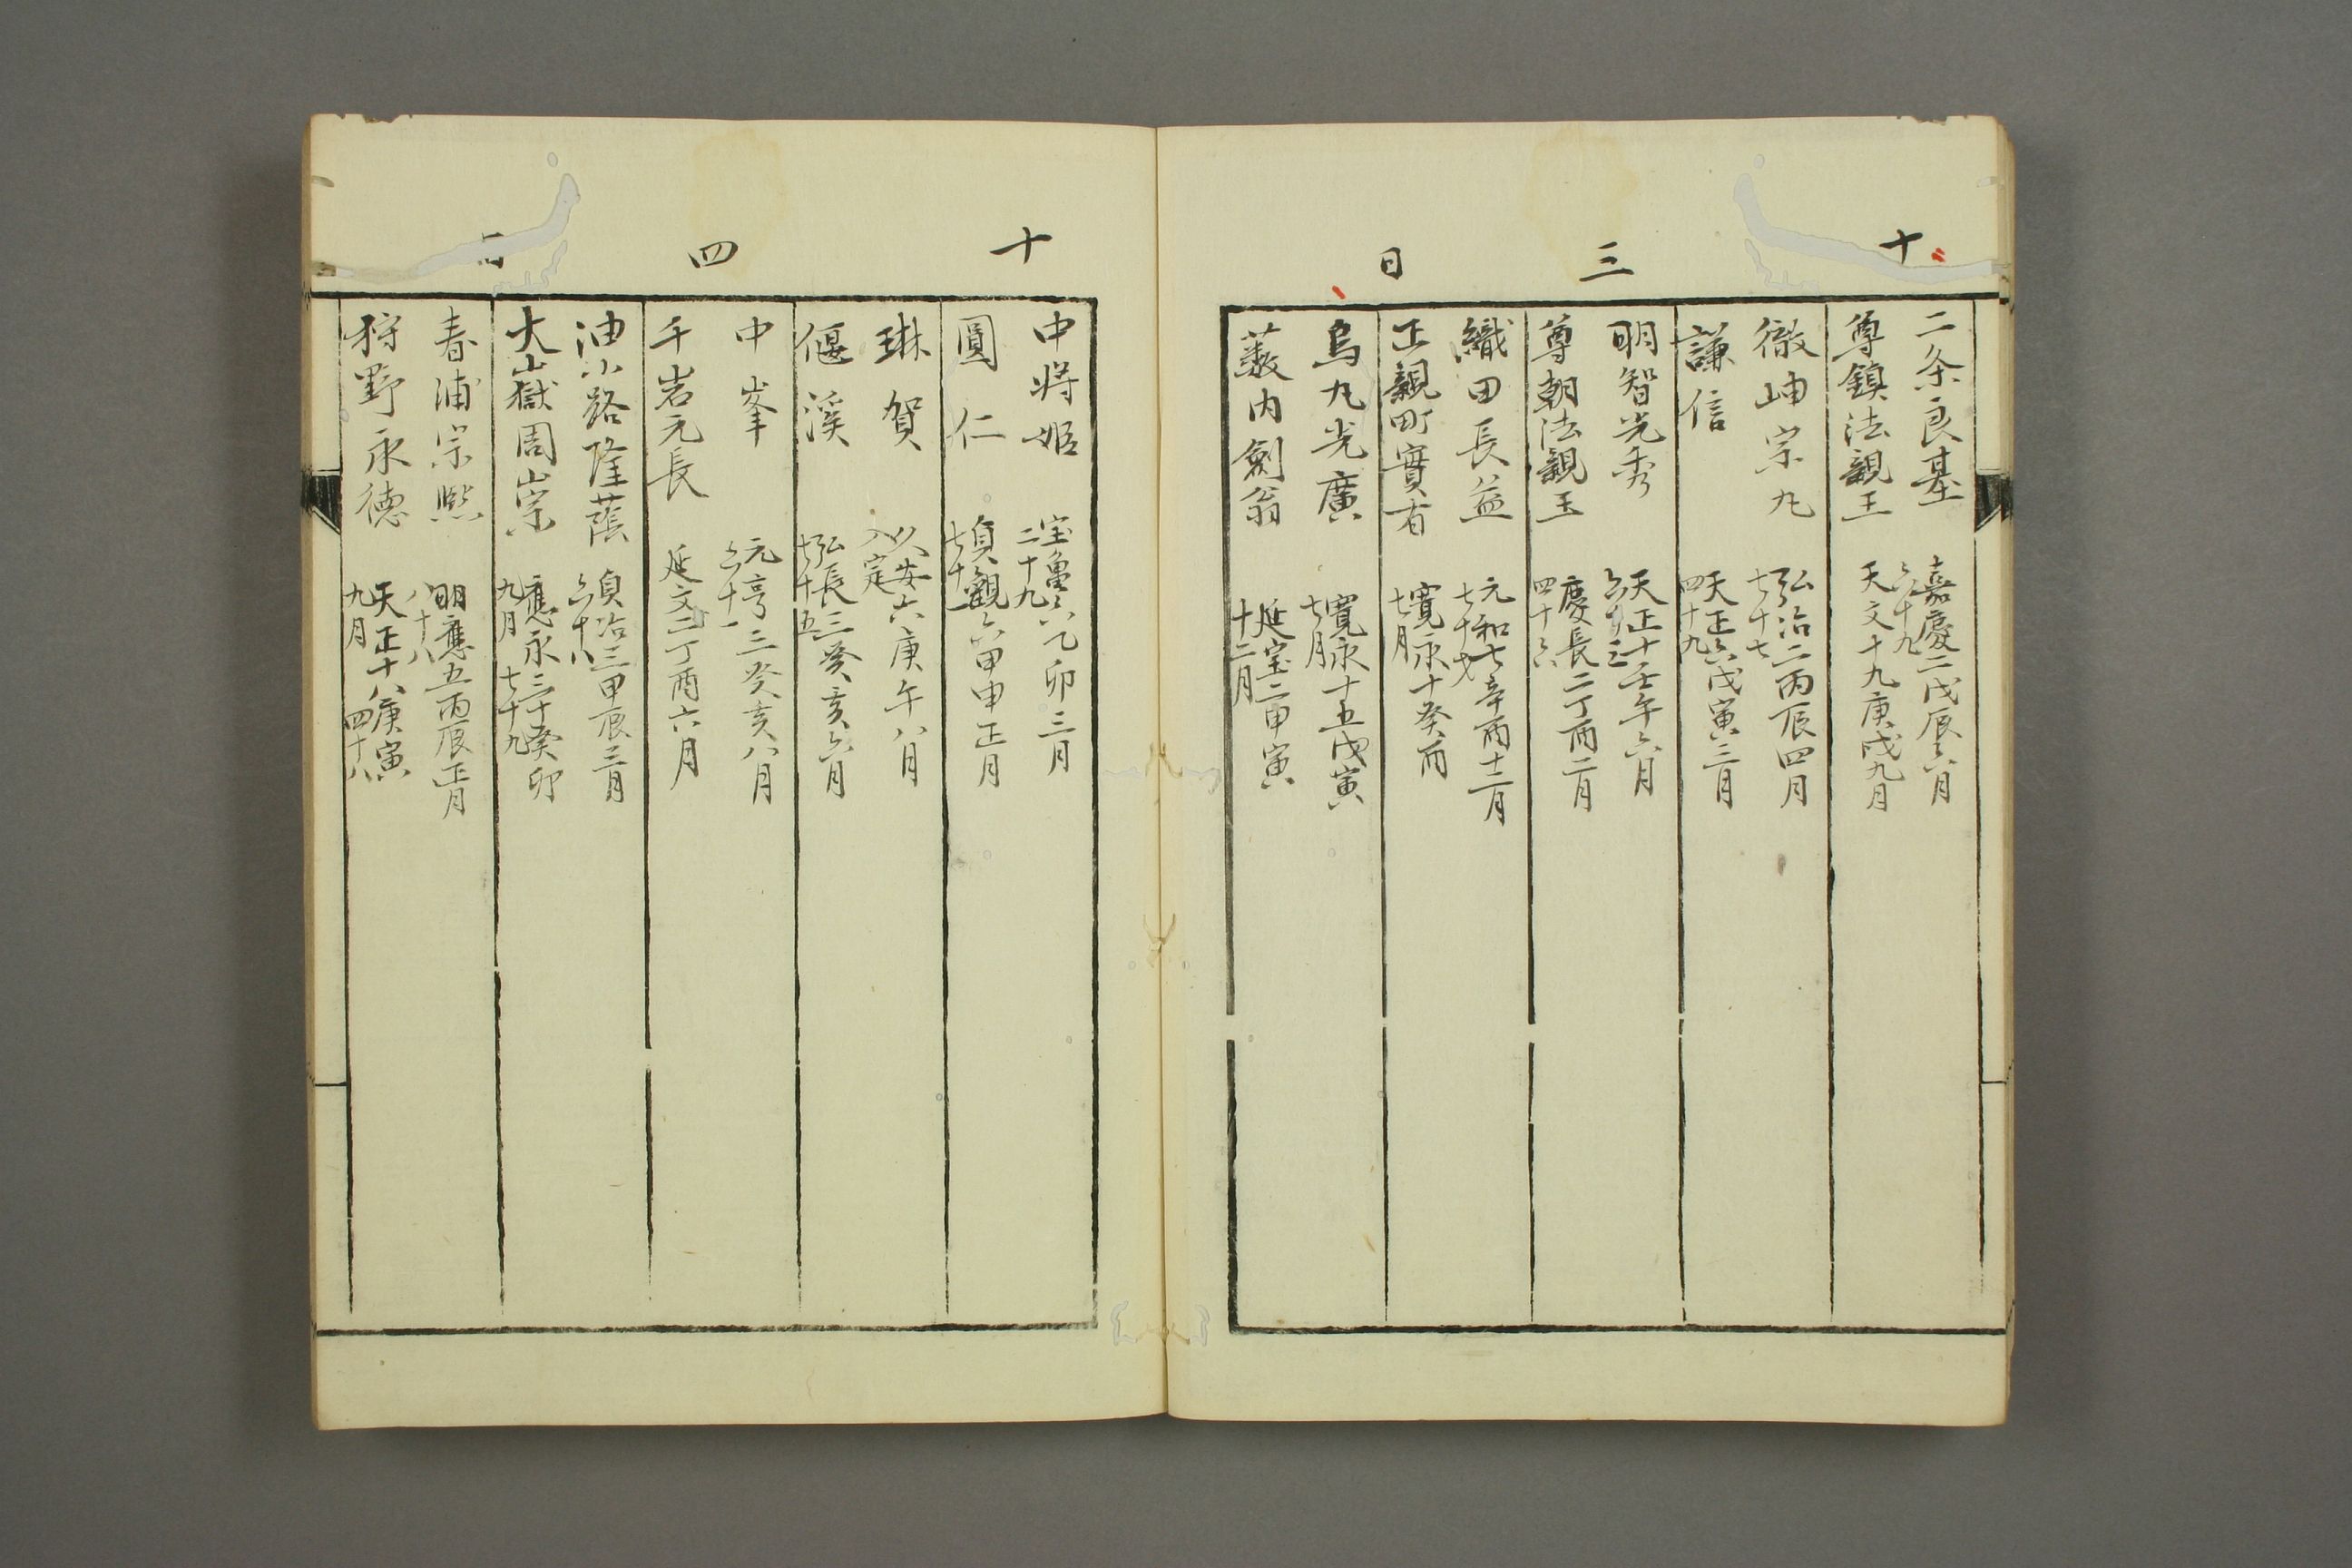 十三日
二条良基
嘉慶二戊辰六月
六十九
尊鎮法親王
天文十九庚戌九月
徹岫宗九
弘治二丙辰四月
七十七
謙信
天正六戊寅三月
四十九
明智光秀
天正十壬午六月
尊朝法親王
慶長二丁酉二月
四十六
織田長益
元和七辛酉十二月
七十才
正親町實有
寛永十癸酉
七月
烏丸光廣
寛永十五戊寅
七月
藪内劍翁
延宝二甲寅
十二月
十四日
中将姫
宝亀六乙卯三月
二十九
圓仁
貞觀六甲申正月
七十一
琳賀
久安六庚午八月
入定
偃溪
弘長三癸亥六月
七十五
中峯
元亨三癸亥八月
六十一
千岩元長
延文二丁酉六月
油小路隆蔭
貞治三甲辰三月
六十八
大嶽周崇
應永三十癸卯
九月 七十九
春浦宗熙
明應五丙辰正月
八十八
狩野永徳
天正十八庚寅
九月 四十八